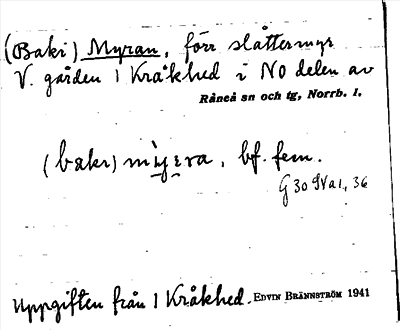 (Baki) Myran, förr slåttermyr
V. gården 1 Kråkhed i NO delen av
Råneå sn och tg, Norrb. l.
(bakı) mỳera, bf. fem.
G 30
36
Uppgiften från 1 Kråkhed. EDVIN BRÄNNSTRÖM 1941